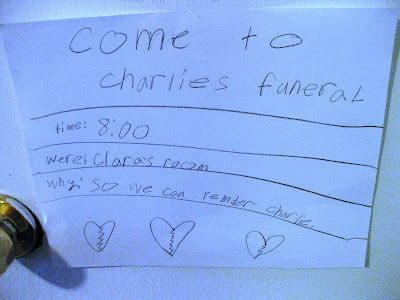 come to
charlies funeral
time: 8:00
were: Clara's room
why: so we can remder charlie.